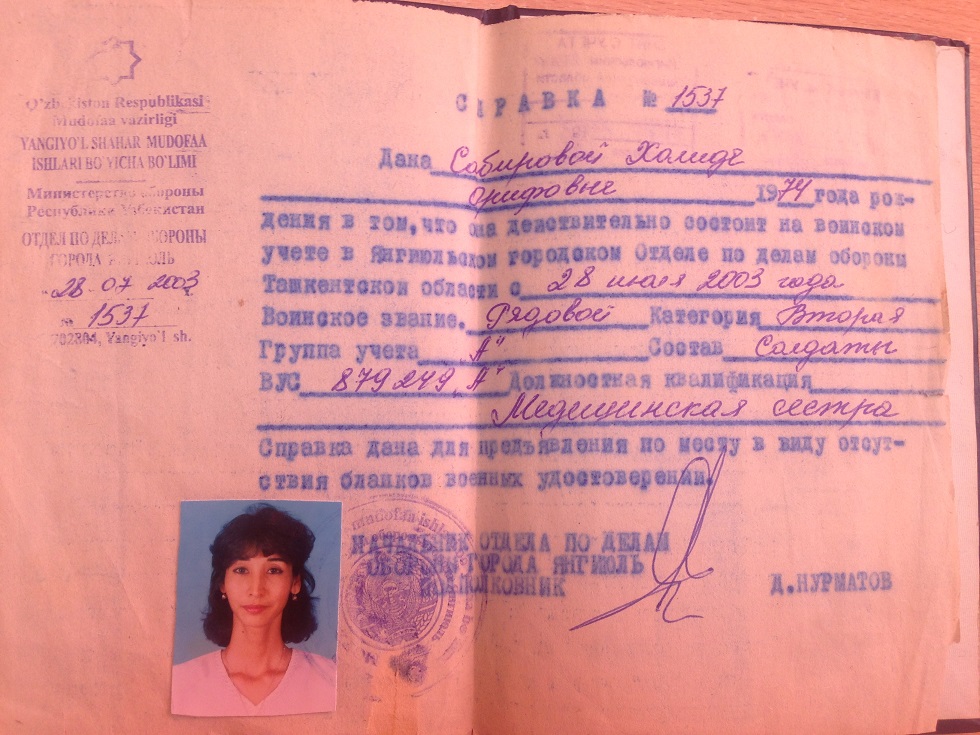 O'zbekiston Respublikasi
Mudofaa vazirligi
YANGIYO'L SHAHAR MUDOFAA
ISHLARI BO'YICHA BO'LIMI
Министерство обороны
Республики Узбекистан
ОТДЕЛ ПО ДЕЛАМ ОБОРОНЫ
ГОРОДА ЯНГИЮЛЬ
"28" 07 2003
№ 1537
702804, Yangiyo'l sh.
СПРАВКА № 1537
Дана Собировой Холиде
Орифовне 1974 года рож-
дения в том, что она действительно состоит на воинском
учете в Янгиюльском городском Отделе по делам обороны
Ташкентской области с 28 июля 2003 года
Воинское звание. Рядовой Категория Вторая
Группа учета "А" Состав Солдаты
ВУС 879249 "А" Должностная квалификация
Медицинская сестра
Справка дана для предъявления по месту в виду отсут-
ствия бланков военных удостоверений.
НАЧАЛЬНИК ОТДЕЛА ПО ДЕЛАМ
ОБОРОНЫ ГОРОДА ЯНГИЮЛЬ
ПОДПОЛКОВНИК Д.НУРМАТОВ
mudofaa ishlari